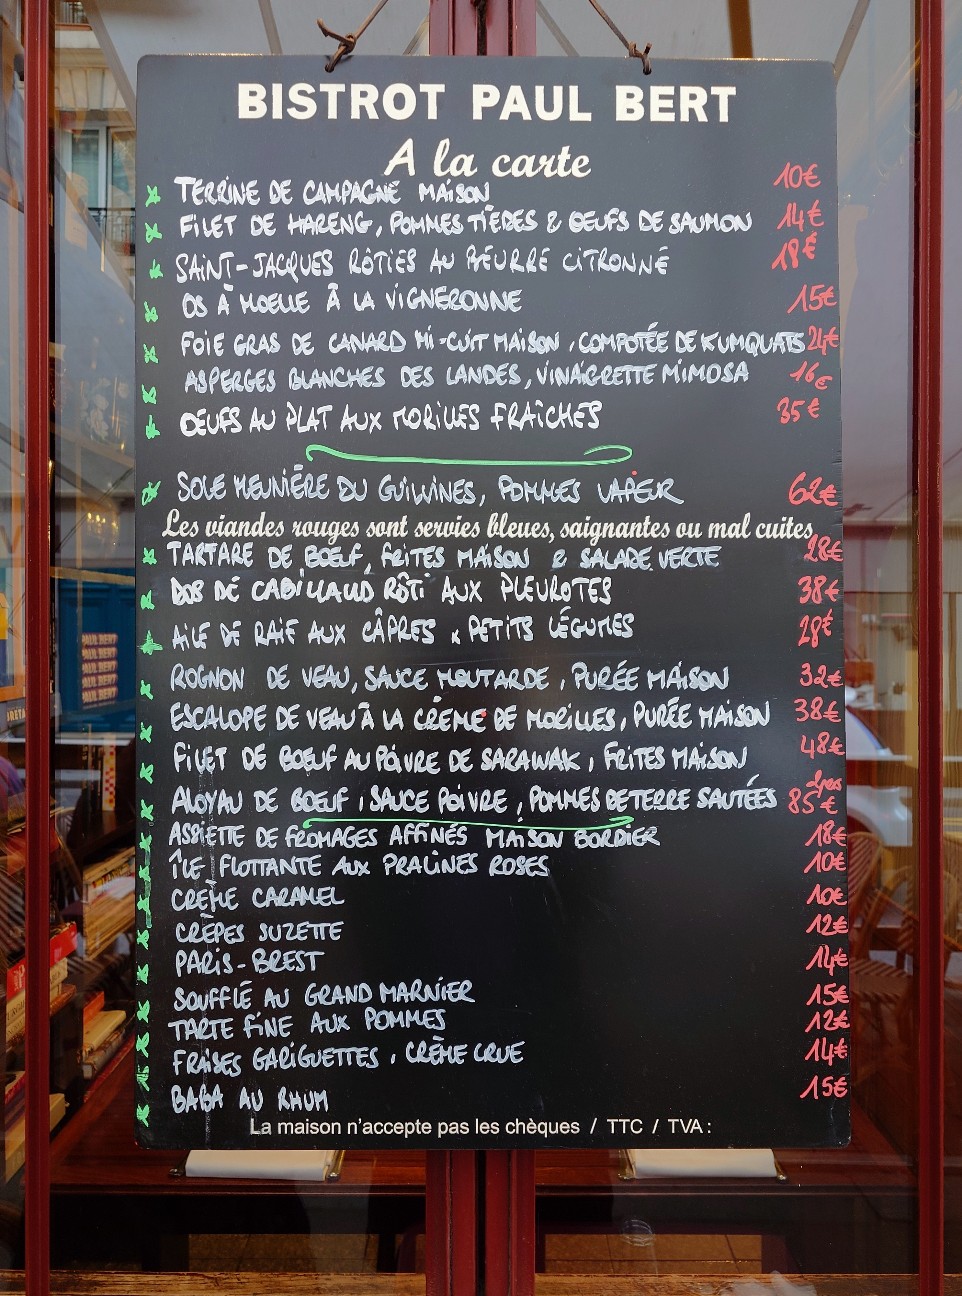 BISTROT PAUL BERT
A la carte
TERRINE DE CAMPAGNE MAISON 10€
FILET DE HARENG, POMMES TIÈDES & OEUFS DE SAUMON 14€
SAINT-JACQUES RÔTIES AU BEURRE CITRONNÉ 18€
OS À MOELLE À LA VIGNERONNE 15€
FOIE GRAS DE CANARD MI-CUIT MAISON, COMPOTÉE DE KUMQUATS 24€
ASPERGES BLANCHES DES LANDES, VINAIGRETTE MIMOSA 16€
OEUFS AU PLAT AUX MORILLES FRAÎCHES 35€
SOLE MEUNIÈRE DU GUILVINES, POMMES VAPEUR 62€
Les viandes rouges sont servies bleues, saignantes ou mal cuites
TARTARE DE BOEUF, FRITES MAISON & SALADE VERTE 28€
DOS DE CABILLAUD RÔTI AUX PLEUROTES 38€
AILE DE RAIE AUX CÂPRES & PETITS LÉGUMES 28€
ROGNON DE VEAU, SAUCE MOUTARDE, PURÉE MAISON 32€
ESCALOPE DE VEAU À LA CRÈME DE MORILLES, PURÉE MAISON 38€
FILET DE BOEUF AU POIVRE DE SARAWAK, FRITES MAISON 48€
ALOYAU DE BOEUF, SAUCE POIVRE, POMMES DE TERRE SAUTÉES 2pers 85€
ASSIETTE DE FROMAGES AFFINÉS MAISON BORDIER 18€
ÎLE FLOTTANTE AUX PRALINES ROSES 10€
CRÈME CARAMEL 10€
CRÊPES SUZETTE 12€
PARIS-BREST 14€
SOUFFLÉ AU GRAND MARNIER 15€
TARTE FINE AUX POMMES 12€
FRAISES GARIGUETTES, CRÈME CRUE 14€
BABA AU RHUM 15€
La maison n'accepte pas les chèques / TTC / TVA :
PAUL BERT
PAUL BERT
PAUL BERT
PAUL BERT